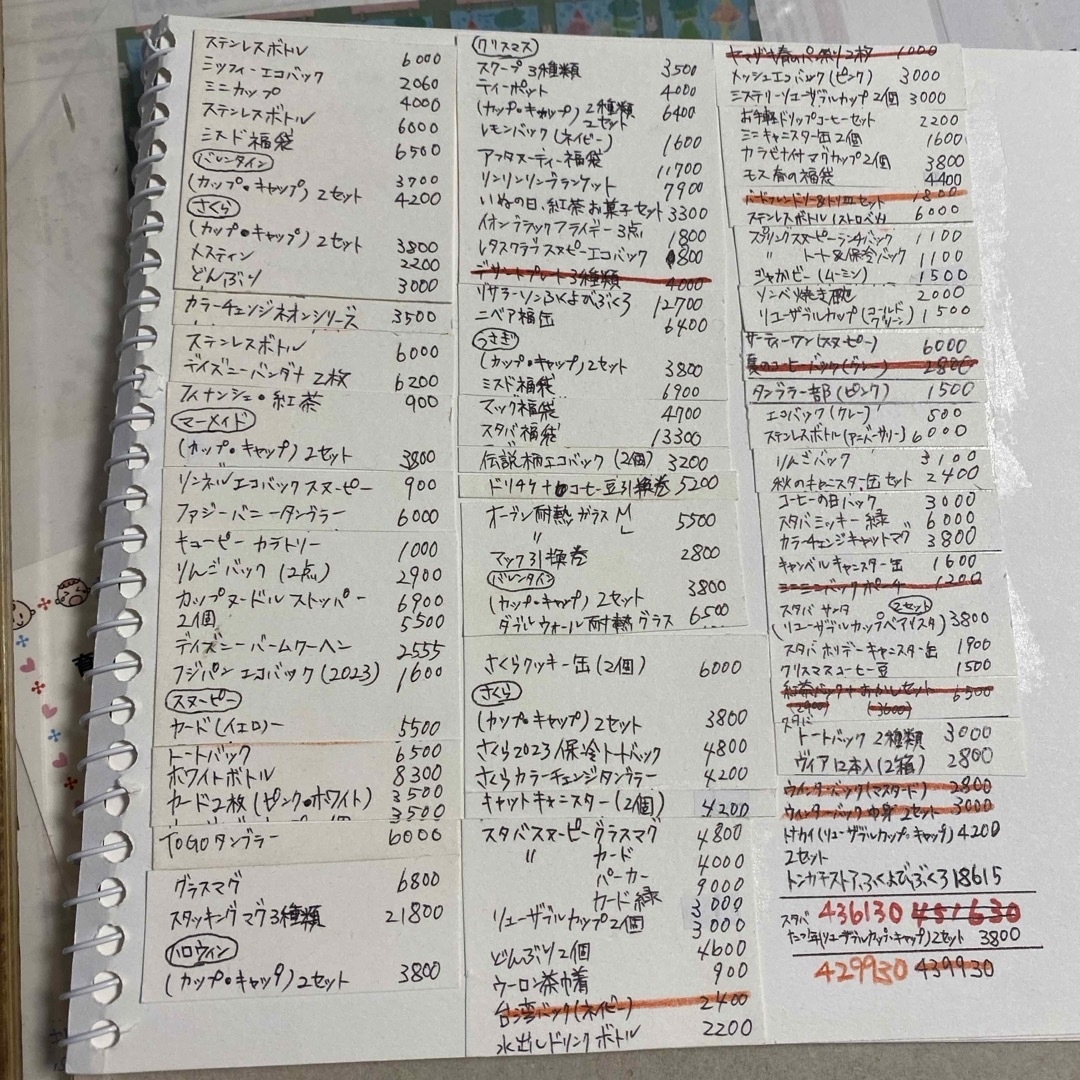 ステンレスボトル 6000
ミッフィーエコバック 2060
ミニカップ 4000
ステンレスボトル 6000
ミスド福袋 6500
バレンタイン 3700
(カップ・キャップ) 2セット 4200
さくら
(カップ・キャップ) 2セット 3800
メスティン 2200
どんぶり 3000
カラーチェンジネオンシリーズ 3500
ステンレスボトル 6000
デイズニーバンダナ 2枚 6200
フィナンシェ・紅茶 900
マーメイド
(カップ・キャップ) 2セット 3800
リンネルエコバックスヌーピー 900
ファジーバニータンブラー 6000
キューピー カラトリー 1000
りんごバック (2点) 2900
カップヌードルストッパー 6900
2個 5500
デイズニーバームクーヘン 2555
フジパンエコバック (2023) 1600
スヌーピー
カード (イエロー 5500
トートバック 6500
ホワイトボトル 8300
カード2枚 (ピンク・ホワイト) 3500
3500
TOGOタンブラー 6000
グラスマグ 6800
スタッキングマグ3種類 21800
ハロウィン
(カップ・キャップ) 2セット 3800
クリスマス
スクープ 3種類 3500
ティーポット 4000
(カップ・キャップ) 2種類 2セット 6400
レモンバック (ネイビー) 1600
アフタヌーンティー福袋 11700
リンリンリンブランケット 7900
いぬの日、紅茶お菓子セット 3300
イオンブラックフライデー3点 1800
レタスクラブスヌーピーエコバック 800
デザートプレート3種類 4000
リサラーソンふくよびぶくろ 12700
ニベア福缶 6400
うさぎ
(カップ・キャップ) 2セット 3800
ミスド福袋 6900
マック福袋 4700
スタバ福袋 13300
伝説柄エコバック (2個) 3200
ドリチケ+コーヒー豆引換巻 5200
オーブン耐熱ガラス M 5500
〃 L
マック引換巻 2800
バレンタイン
(カップ・キャップ) 2セット 3800
ダブルウォール耐熱グラス 6500
さくらクッキー缶 (2個) 6000
さくら
(カップ・キャップ) 2セット 3800
さくら2023保冷トートバック 4800
さくらカラーチェンジタンブラー 4200
キャットキャニスター (2個) 4200
スタバスヌーピーグラスマグ 4800
〃 カード 4000
パーカー 9000
カード緑 3000
リユーザブルカップ2個 3000
どんぶり2個 4600
ウーロン茶巾着 900
台湾バック (ネイビー) 2400
水出しドリンクボトル 2200
ヤマザキ春のパン祭り2枚 1000
メッシュエコバック (ピンク) 3000
ミステリーリユーザブルカップ2個 3000
お手軽ドリップコーヒーセット 2200
ミニキャニスター缶2個 1600
カラビナ付マグカップ2個 3800
モス春の福袋 4400
バードフレンドリー&トリ皿セット 1800
ステンレスボトル (ストロベリ) 6000
スプリングスヌーピーランチバック 1100
〃 トート&保冷バック 1100
ジャガビー (ムーミン) 1500
ソンベ焼き碗 2000
リユーザブルカップ (コールドグリーン) 1500
サーティーワン (スヌーピー) 6000
夏のコーヒーバック (グレー) 2800
タンブラー部 (ピンク) 1500
エコバック (グレー) 500
ステンレスボトル (アニバーサリー) 6000
りんごバック 3100
秋のキャニスター缶セット 2400
コーヒーの日バック 3000
スタバミッキー緑 6000
カラーチェンジキャットマグ 3800
キャンベルキャニスター缶 1600
ミニミニバックポーチ 1200
スタバ サンタ 2セット
(リユーザブルカップベアイスタ) 3800
スタバホリデーキャニスター缶 1900
クリスマスコーヒー豆 1500
紅茶バック+おかしセット 6500
2900 (3600)
スタバ
トートバック 2種類 3000
ヴィア12本入 (2箱) 2800
ウインターバック (マスタード) 2800
ウィンターバック中身2セット 3000
トナカイ(リユーザブルカップ・キャップ) 4200
2セット
トンカチストア、ふくよびぶくろ 18615
スタバ 436130 451630
たつ年(リユーザブルカップ・キャップ)2セット 3800
429930 439930